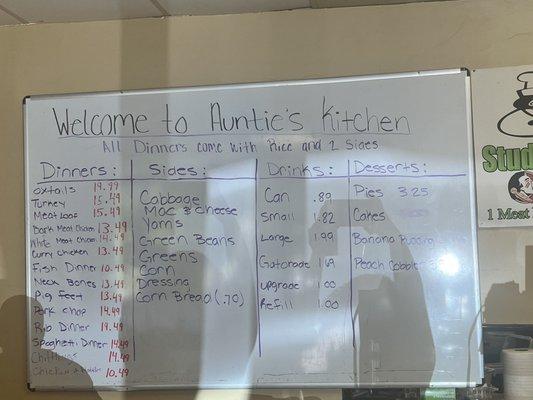 Welcome to Auntie's Kitchen
All Dinners come with Rice and 2 Sides
Dinners:
Oxtails 19.99
Turkey 15.49
Meat Loaf 15.49
Dark Meat Chicken 13.49
White Meat Chicken 14.49
Curry Chicken 13.49
Fish Dinner 10.49
Neck Bones 13.49
Pig Feet 13.49
Pork Chop 14.49
Rib Dinner 19.49
Spaghetti Dinner 14.49
Chitterlings 14.49
Chicken 10.49
Sides:
Cabbage
Mac & Cheese
Yams
Green Beans
Greens
Corn
Dressing
Corn Bread (.70)
Drinks:
Can .89
Small 1.82
Large 1.99
Gatorade 1.69
upgrade 1.00
Refill 1.00
Desserts:
Pies 3.25
Cakes
Banana Pudding
Peach Cobbler
Stud
1 Meat